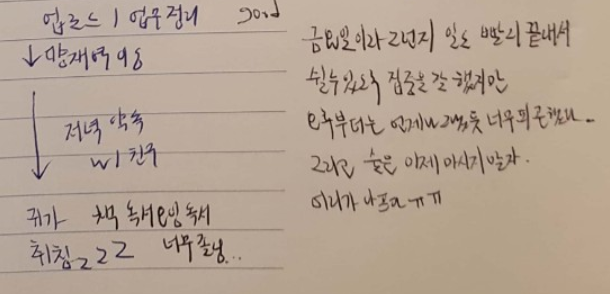 업로드 / 업무정리 good
↓
저녁 약속
w/ 친구
귀가 책 독서 독서
취침 zzz 너무 졸령...
금요일이라 그런지 일도 빨리 끝내서
쉴 수 있도록 집중을 잘 했지만
오후부터는 언제나 그랬듯 너무 피곤했다..
그리고 술은 이제 마시지 말자.
머리가 나프다 ㅠㅠ